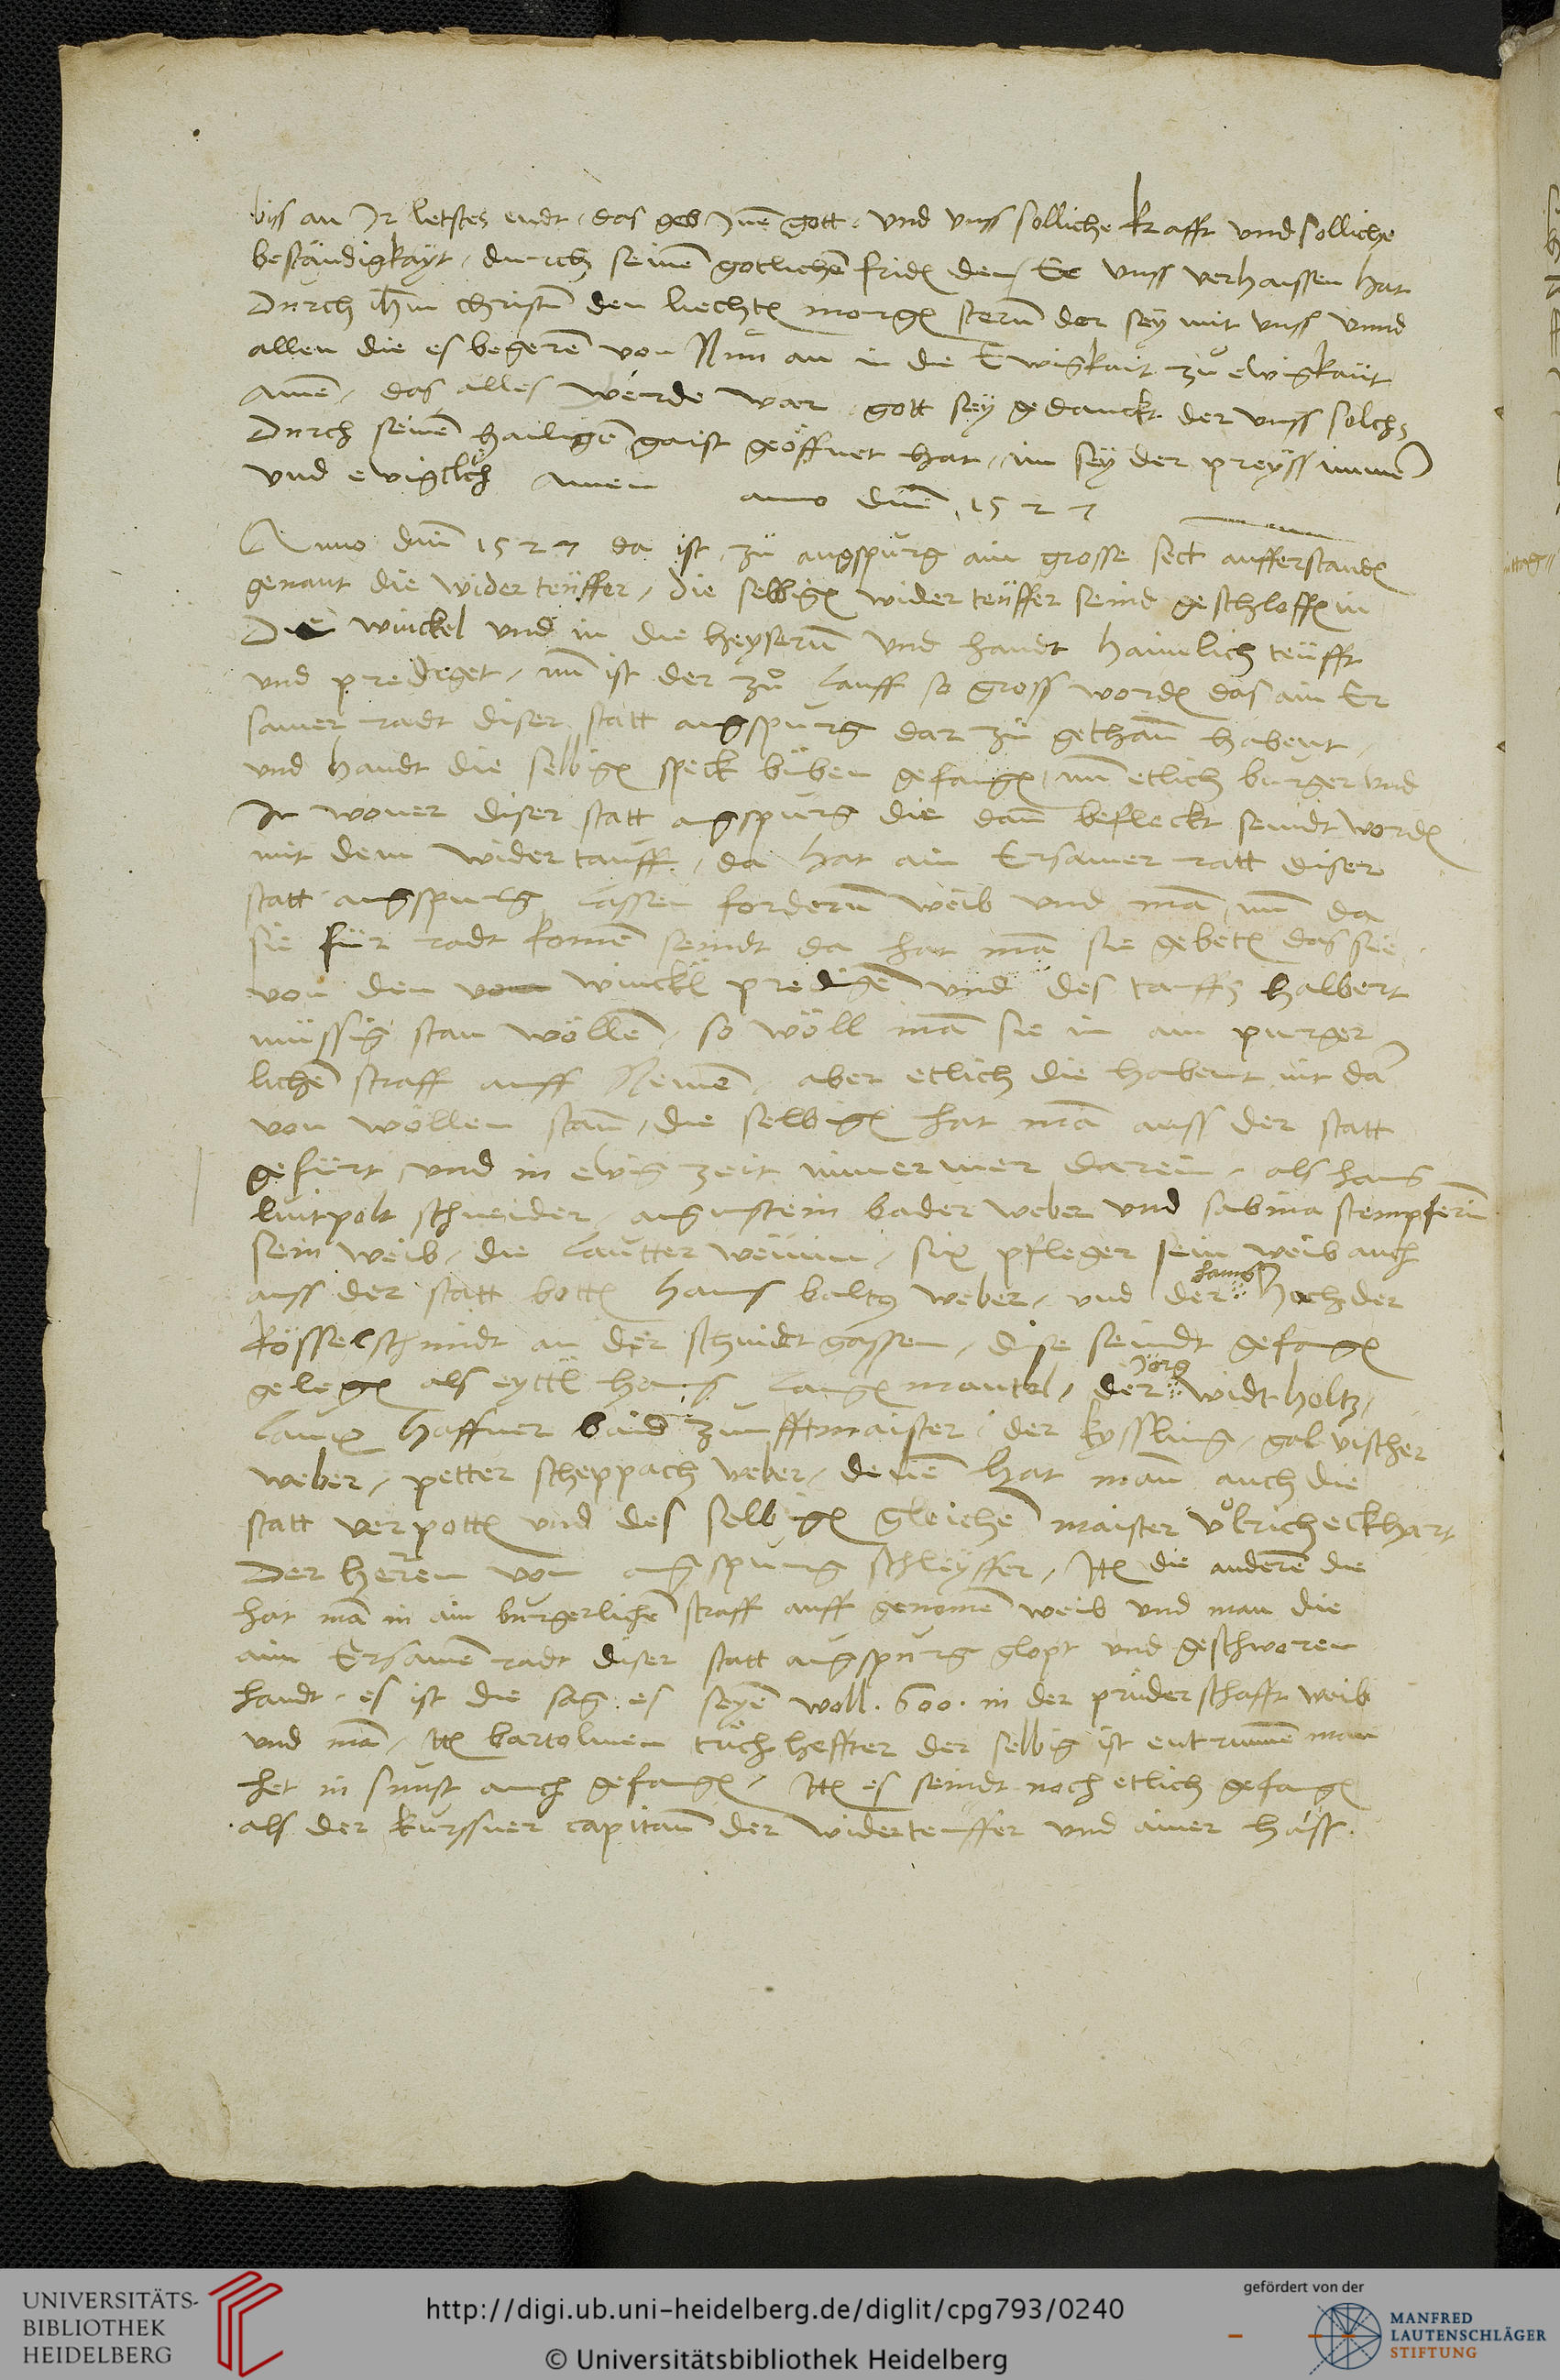 biss an Ir letstes endt, das geb Inen gott, und unss solliche krafft und solliche
beständigkayt, durch seinen gotlichen friden den Er unss verhaissen hat
Durch Jhm christum den liechten morgen stern der sey mit unss unnd
allen die es begeren von Nun an in die Ewigkait zů ewigkaüt
Amen, das alles werde war, gott sey gedanckt der unss solchs
Durch seinen hailigen gaist geöffnet hat, im sey der preyss immer
und ewiglich Amen anno dm̄ 1527
Anno dm̄ 1527 da ist zü augspurg ain grosse sect aufferstanden
genant die wider teüffer, die selbigen wider teüffer seind geschloffen in
Die winckel und in die heysern und handt haimlich teüfft
und prediget, nun ist der zů lauff so gross worden das ain Er
samer radt diser statt augspurg dar zü gethan habent,
und handt die selbigen speck büben gefangen, nun etlich burger und
In woner diser statt augspurg die dann befleckt seindt worden
mit dem wider tauff, da hat ain Ersamer ratt diser
statt augspurg lassen fordern weib und man, nun da
sie für radt komen seindt da hat man sie gebeten das sie
von den winckel predigen und des tauffs halbert
müssig stan wöllen, so wöll man sie in ain purger
lichen straff auff Nemen, aber etlich die habent nit da
von wöllen stan, die selbigen hat man auss der statt
gefürt, und in ewig zeit nimer mer darein, als hans
luitpolt schneider, augustein bader weber und sabina stempferin
sein weib, die lautter weinin, six pfleger sein weib auch
auss der statt botten hans baltas weber, und der hans hecher der
kösselschmidt an der schmidt gassen, dise seindt gefangen
gelegen als eyttel hans langen mantel, der Jörg widtholtz,
laux haffner baid zunfftmaister, der kyssling, gal vischer
weber, petter scheppach weber, denen hat man auch die
statt verpotten und des selbigen gleichen maister ůlrich eckhart
Der herren von augspurg schleyffer, Item die anderen die
hat man in ain burgerlichen straff auff genomen weib und man die
aim Ersamen radt diser statt augspurg glopt und geschworen
handt, es ist die sag es seyen woll .600. in der pruderschafft weib
und man, Item bartolmen tüch heffter der selbig ist entrunnen man
het in sunst auch gefangen, Item es seindt noch etlich gefangen
als der kürssner capitan der widerteuffer und ainer haist.
UNIVERSITÄTS-
BIBLIOTHEK
HEIDELBERG
http://digi.ub.uni-heidelberg.de/diglit/cpg793/0240
© Universitätsbibliothek Heidelberg
gefördert von der
MANFRED
LAUTENSCHLÄGER
STIFTUNG